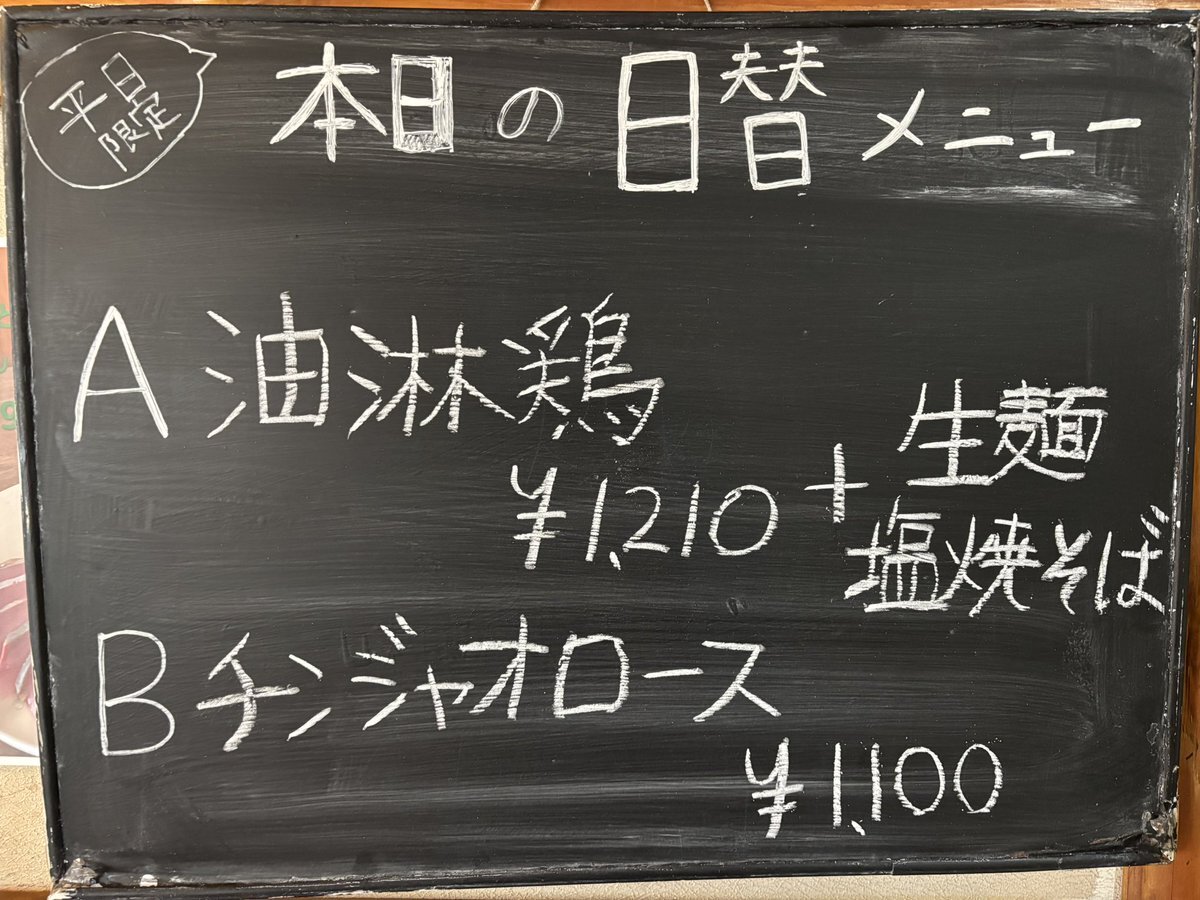 平日
限定
本日の日替メニュー
A 油淋鶏
¥1,210
+
生麺
塩焼そば
B チンジャオロース
¥1,100